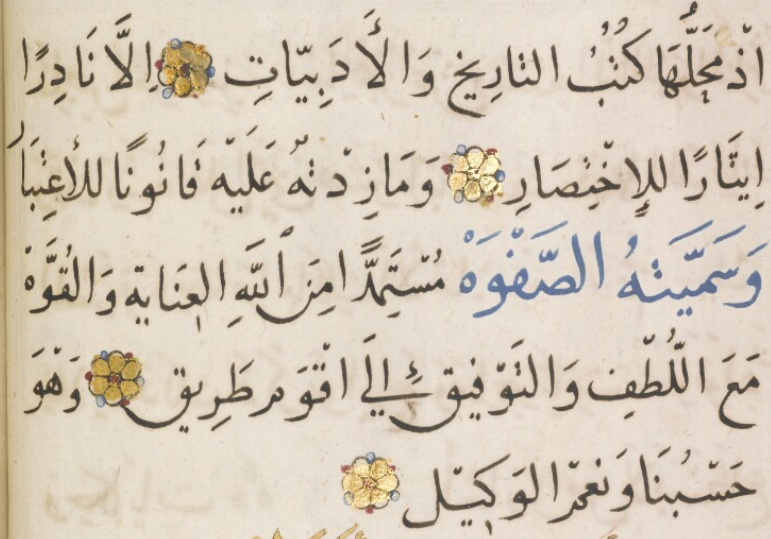 اذْ مَحَلُّهَا كُتُبُ التارِيخ وَالأَدَبِيّاتِ اِلَّا نَادِرًا
اِيثَارًا لِلاِخْتِصَارِ وَمَازِدْتهُ عَلَيْه قَانُونًا للأعْتِبَا
وَسَمَّيتهُ الصَّفْوَهْ مُسْتَمِدًّا مِنَ اللَّهِ العِنَايه وَالقُوَّهْ
مَعَ اللُّطْفِ وَالتَوْفِيق إِليَ اقْوَمِ طَرِيق وَهْوَ
حَسْبُنَا وَنعْمَ الوَكِيْل